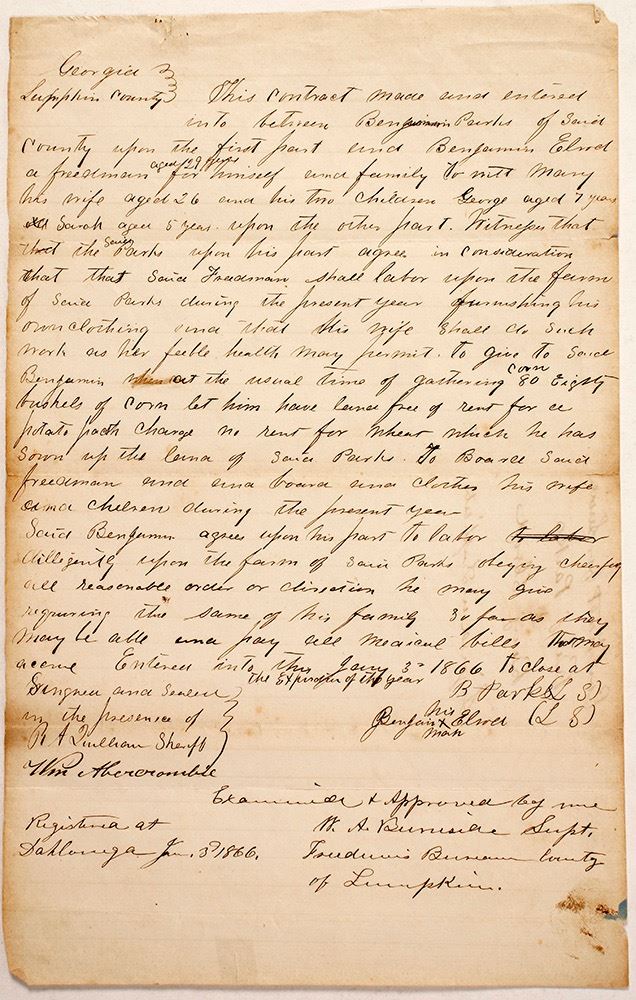 Georgia
Lumpkin County This contract made and entered
into between Benjamin Parks of Said
County upon the first part and Benjamin Elrod
a freedman aged 29 years for himself and family to wit Mary
his wife aged 26 and his two children George aged 7 years
Sarah aged 5 years. upon the other part. Witness that
that the Said Parks upon his part agrees in consideration
that that Said Freedman shall labor upon the farm
of Said Parks during the present year furnishing his
own clothing and that his wife shall do such
work as her feeble health may permit. to give to Said
Benjamin when at the usual time of gathering corn 80 Eighty
bushels of corn let him have land free of rent for a
potato patch charge no rent for wheat which he has
Sown up the land of Said Parks. To Board Said
freedman and and board and clothes his wife
and children during the present year
Said Benjamin agrees upon his part to labor to labor
dilligently upon the farm of Said Parks obeying cheerfully
all reasonable order or direction he may give
requiring the same of his family So far as they
may be able and pay all medical bills that may
accrue Entered into this Jany 3d 1866 to close at
the Expiration of the year
Singned and Sealed B Parks (L S)
in the presence of Benjamin his X mark Elrod (L S)
R A Quillian Sheriff
Wm Abercrombie
Examined & Approved by me
Registered at W. A. Burnside Supt.
Dahlonega Jan. 3d 1866. Freedmens Bureau County
of Lumpkin.